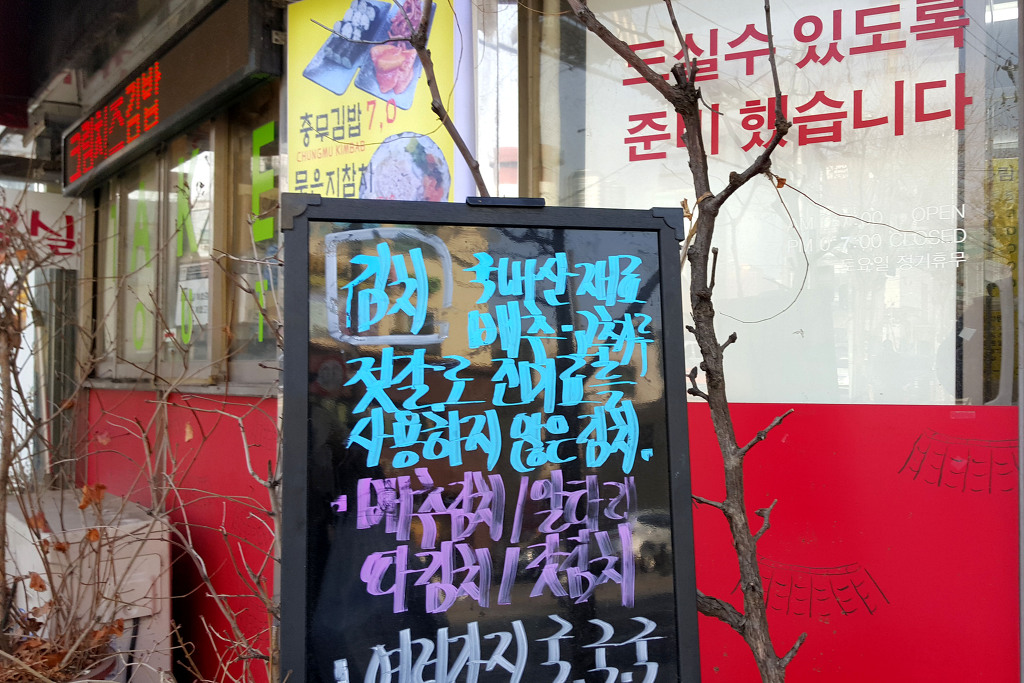 크림치즈김밥
충무김밥 7,0
CHUNGMU KIMBAB
묵은지참치
드실수 있도록
준비 했습니다
OPEN
7:00 CLOSED
토요일 정기휴무
김치 국내산 재료
배추·고춧가루
젓갈·로 진하고
사용하지 않은 김치.
·배추김치/알타리
파김치/갓김치
여러가지 국.국.국